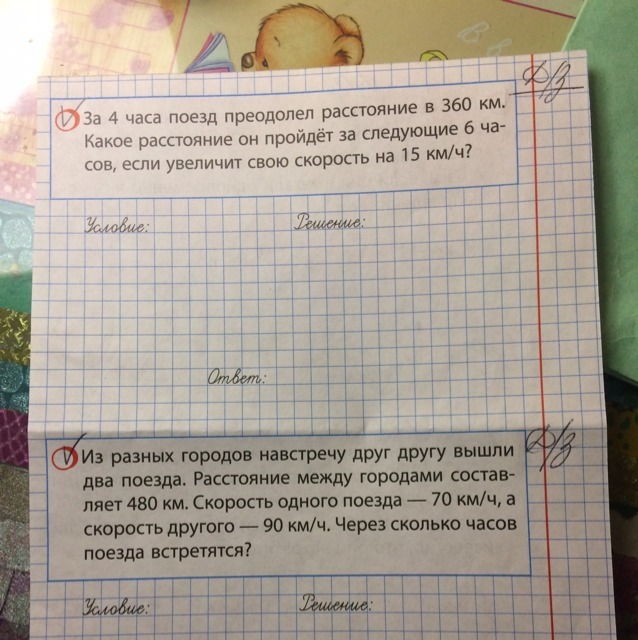 Д/З
За 4 часа поезд преодолел расстояние в 360 км.
Какое расстояние он пройдёт за следующие 6 ча-
сов, если увеличит свою скорость на 15 км/ч?
Условие: Решение:
Ответ:
Д/З
Из разных городов навстречу друг другу вышли
два поезда. Расстояние между городами состав-
ляет 480 км. Скорость одного поезда — 70 км/ч, а
скорость другого — 90 км/ч. Через сколько часов
поезда встретятся?
Условие: Решение: